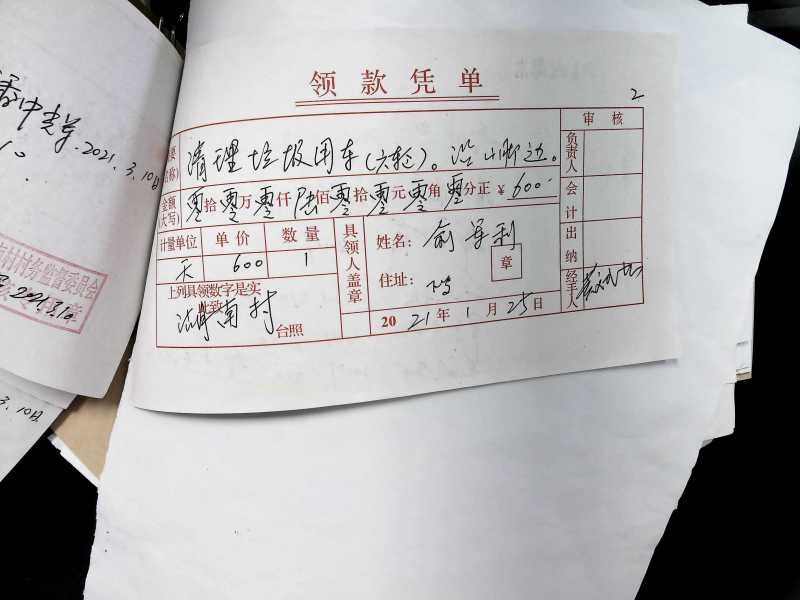 领款凭单
2
审核
摘要(名称) 清理垃圾用车(六轮)。沿山脚边。
负责人
金额(大写) 零拾零万零仟陆佰零拾零元零角零分正 ¥ 600
计量单位 单价 数量
具领人盖章
姓名: 俞军利
会计
天 600 1
章
住址:
出纳
上列具领数字是实
此致
湖南村 台照
2021年1月25日
经手人
2021.3.10日
村村务监督委员会
2021.3.10
章
3.10日